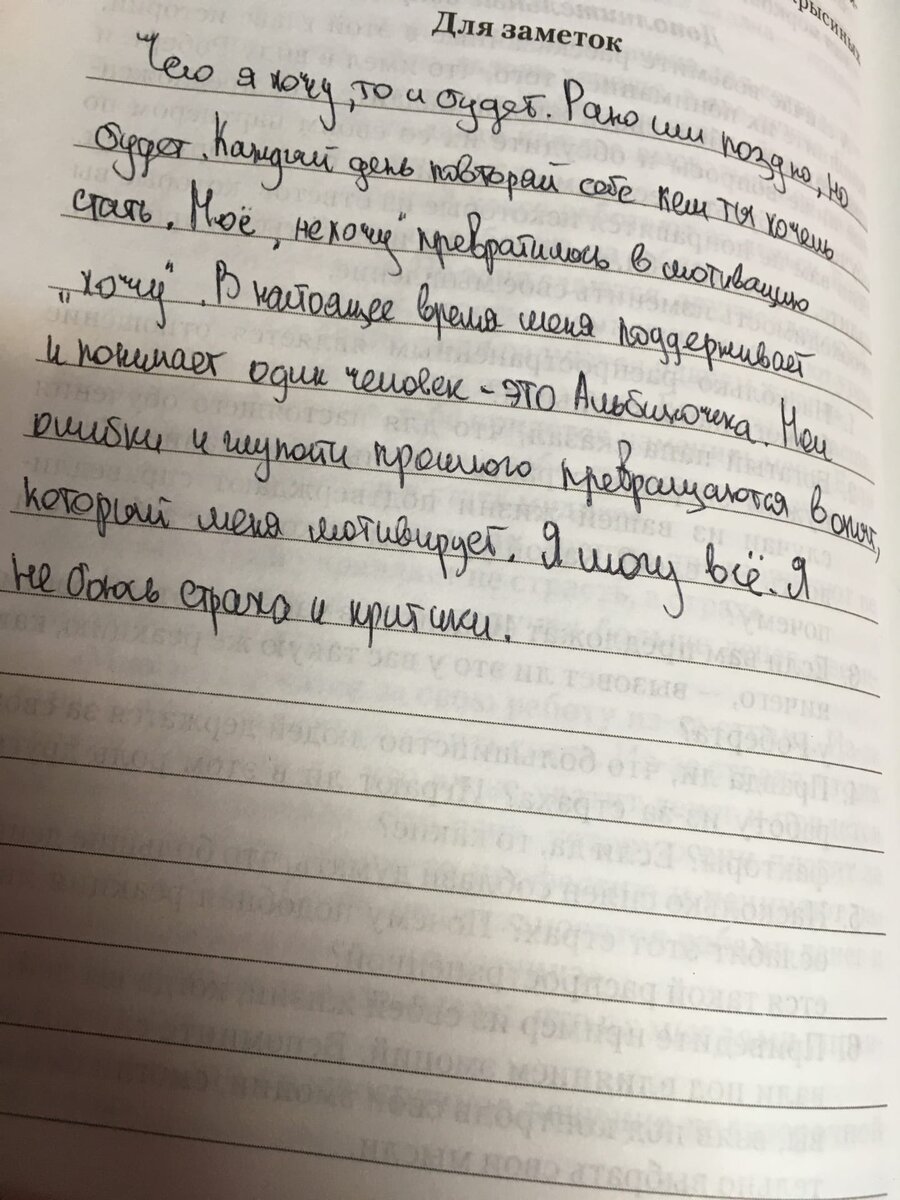 крысиных
Для заметок
Чего я хочу, то и будет. Рано или поздно, но
будет. Каждый день повторяй себе кем ты хочешь
стать. Моё „не хочу" превратилось в мотивацию
„хочу". В настоящее время меня поддерживает
и понимает один человек - это Альбиночка. Мои
ошибки и глупости прошлого превращаются в опыт,
который меня мотивирует. Я могу всё. Я
не боюсь страха и критики.